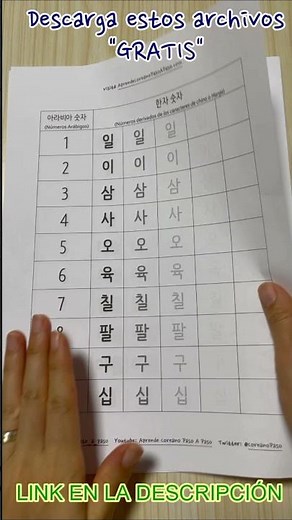 Descarga estos archivos
"GRATIS"
Visita AprendeCoreanoPasoAPaso.com
아라비아 숫자
(Números Arábigos)
한자 숫자
(Números derivados de los caracteres de chino o Hanja)
1 일 일 일
2 이 이 이
3 삼 삼 삼
4 사 사 사
5 오 오 오
6 육 육 육
7 칠 칠 칠
8 팔 팔 팔
구 구 구
십 십 십
Paso A Paso Youtube: Aprende Coreano Paso A Paso Twitter: @CoreanoPaso
LINK EN LA DESCRIPCIÓN